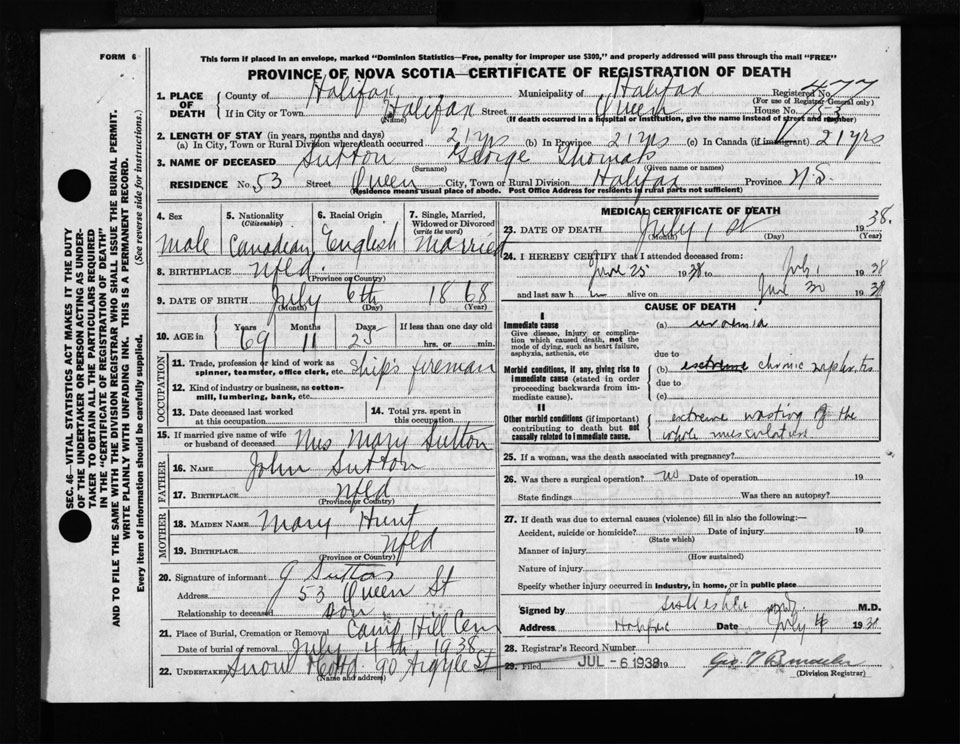 FORM 6
This form if placed in an envelope, marked "Dominion Statistics—Free, penalty for improper use $300," and properly addressed will pass through the mail "FREE"
PROVINCE OF NOVA SCOTIA—CERTIFICATE OF REGISTRATION OF DEATH
SEC. 46—VITAL STATISTICS ACT MAKES IT THE DUTY
OF THE UNDERTAKER OR PERSON ACTING AS UNDER-
TAKER TO OBTAIN ALL THE PARTICULARS REQUIRED
IN THE "CERTIFICATE OF REGISTRATION OF DEATH"
AND TO FILE THE SAME WITH THE DIVISION REGISTRAR WHO SHALL ISSUE THE BURIAL PERMIT.
WRITE PLAINLY WITH UNFADING INK. THIS IS A PERMANENT RECORD.
Every item of information should be carefully supplied. (See reverse side for instructions.)
1. PLACE OF DEATH County of Halifax Municipality of Halifax Registered No. 477
(For use of Registrar General only)
If in City or Town Halifax Street Queen House No. 53
(Name) (If death occurred in a hospital or institution, give the name instead of street and number)
2. LENGTH OF STAY (in years, months and days)
(a) In City, Town or Rural Division where death occurred 21 yrs (b) In Province 21 yrs (c) In Canada (if immigrant) 21 yrs
3. NAME OF DECEASED Sutton George Thomas
(Surname) (Given name or names)
RESIDENCE No. 53 Street Queen City, Town or Rural Division Halifax Province N.S.
(Residence means usual place of abode. Post Office Address for residents in rural parts not sufficient)
4. Sex 5. Nationality (Citizenship) 6. Racial Origin 7. Single, Married, Widowed or Divorced (write the word)
Male Canadian English Married
8. BIRTHPLACE Nfld.
(Province or Country)
9. DATE OF BIRTH July 6th 1868
(Month) (Day) (Year)
10. AGE in Years Months Days If less than one day old
69 11 25 hrs. or min.
OCCUPATION
11. Trade, profession or kind of work as spinner, teamster, office clerk, etc. Ship's fireman
12. Kind of industry or business, as cotton-mill, lumbering, bank, etc.
13. Date deceased last worked at this occupation 14. Total yrs. spent in this occupation
15. If married give name of wife or husband of deceased Mrs Mary Sutton
FATHER
16. NAME John Sutton
17. BIRTHPLACE Nfld
(Province or Country)
MOTHER
18. MAIDEN NAME Mary Hunt
19. BIRTHPLACE Nfld
(Province or Country)
20. Signature of informant G Sutton
Address 53 Queen St
Relationship to deceased son
21. Place of Burial, Cremation or Removal Camp Hill Cem
Date of burial or removal July 4th 1938
22. UNDERTAKER Snow & Co Ltd 90 Argyle St
(Name and address)
MEDICAL CERTIFICATE OF DEATH
23. DATE OF DEATH July 1st 1938.
(Month) (Day) (Year)
24. I HEREBY CERTIFY that I attended deceased from:
June 25 1938 to July 1 1938
and last saw h im alive on June 30 1938
CAUSE OF DEATH
I
Immediate cause
Give disease, injury or complication which caused death, not the mode of dying, such as heart failure, asphyxia, asthenia, etc
(a) uraemia
due to
Morbid conditions, if any, giving rise to immediate cause (stated in order proceeding backwards from immediate cause).
(b) extreme chronic nephritis
due to
(c)
II
Other morbid conditions (if important) contributing to death but not causally related to immediate cause.
extreme wasting of the
whole musculature
25. If a woman, was the death associated with pregnancy?
26. Was there a surgical operation? no Date of operation 19
State findings Was there an autopsy?
27. If death was due to external causes (violence) fill in also the following:—
Accident, suicide or homicide? Date of injury 19
(State which)
Manner of injury
(How sustained)
Nature of injury
Specify whether injury occurred in industry, in home, or in public place
Signed by M.D.
Address Halifax Date July 4 1938
28. Registrar's Record Number
29. Filed JUL - 6 1938 19 Geo. T
(Division Registrar)